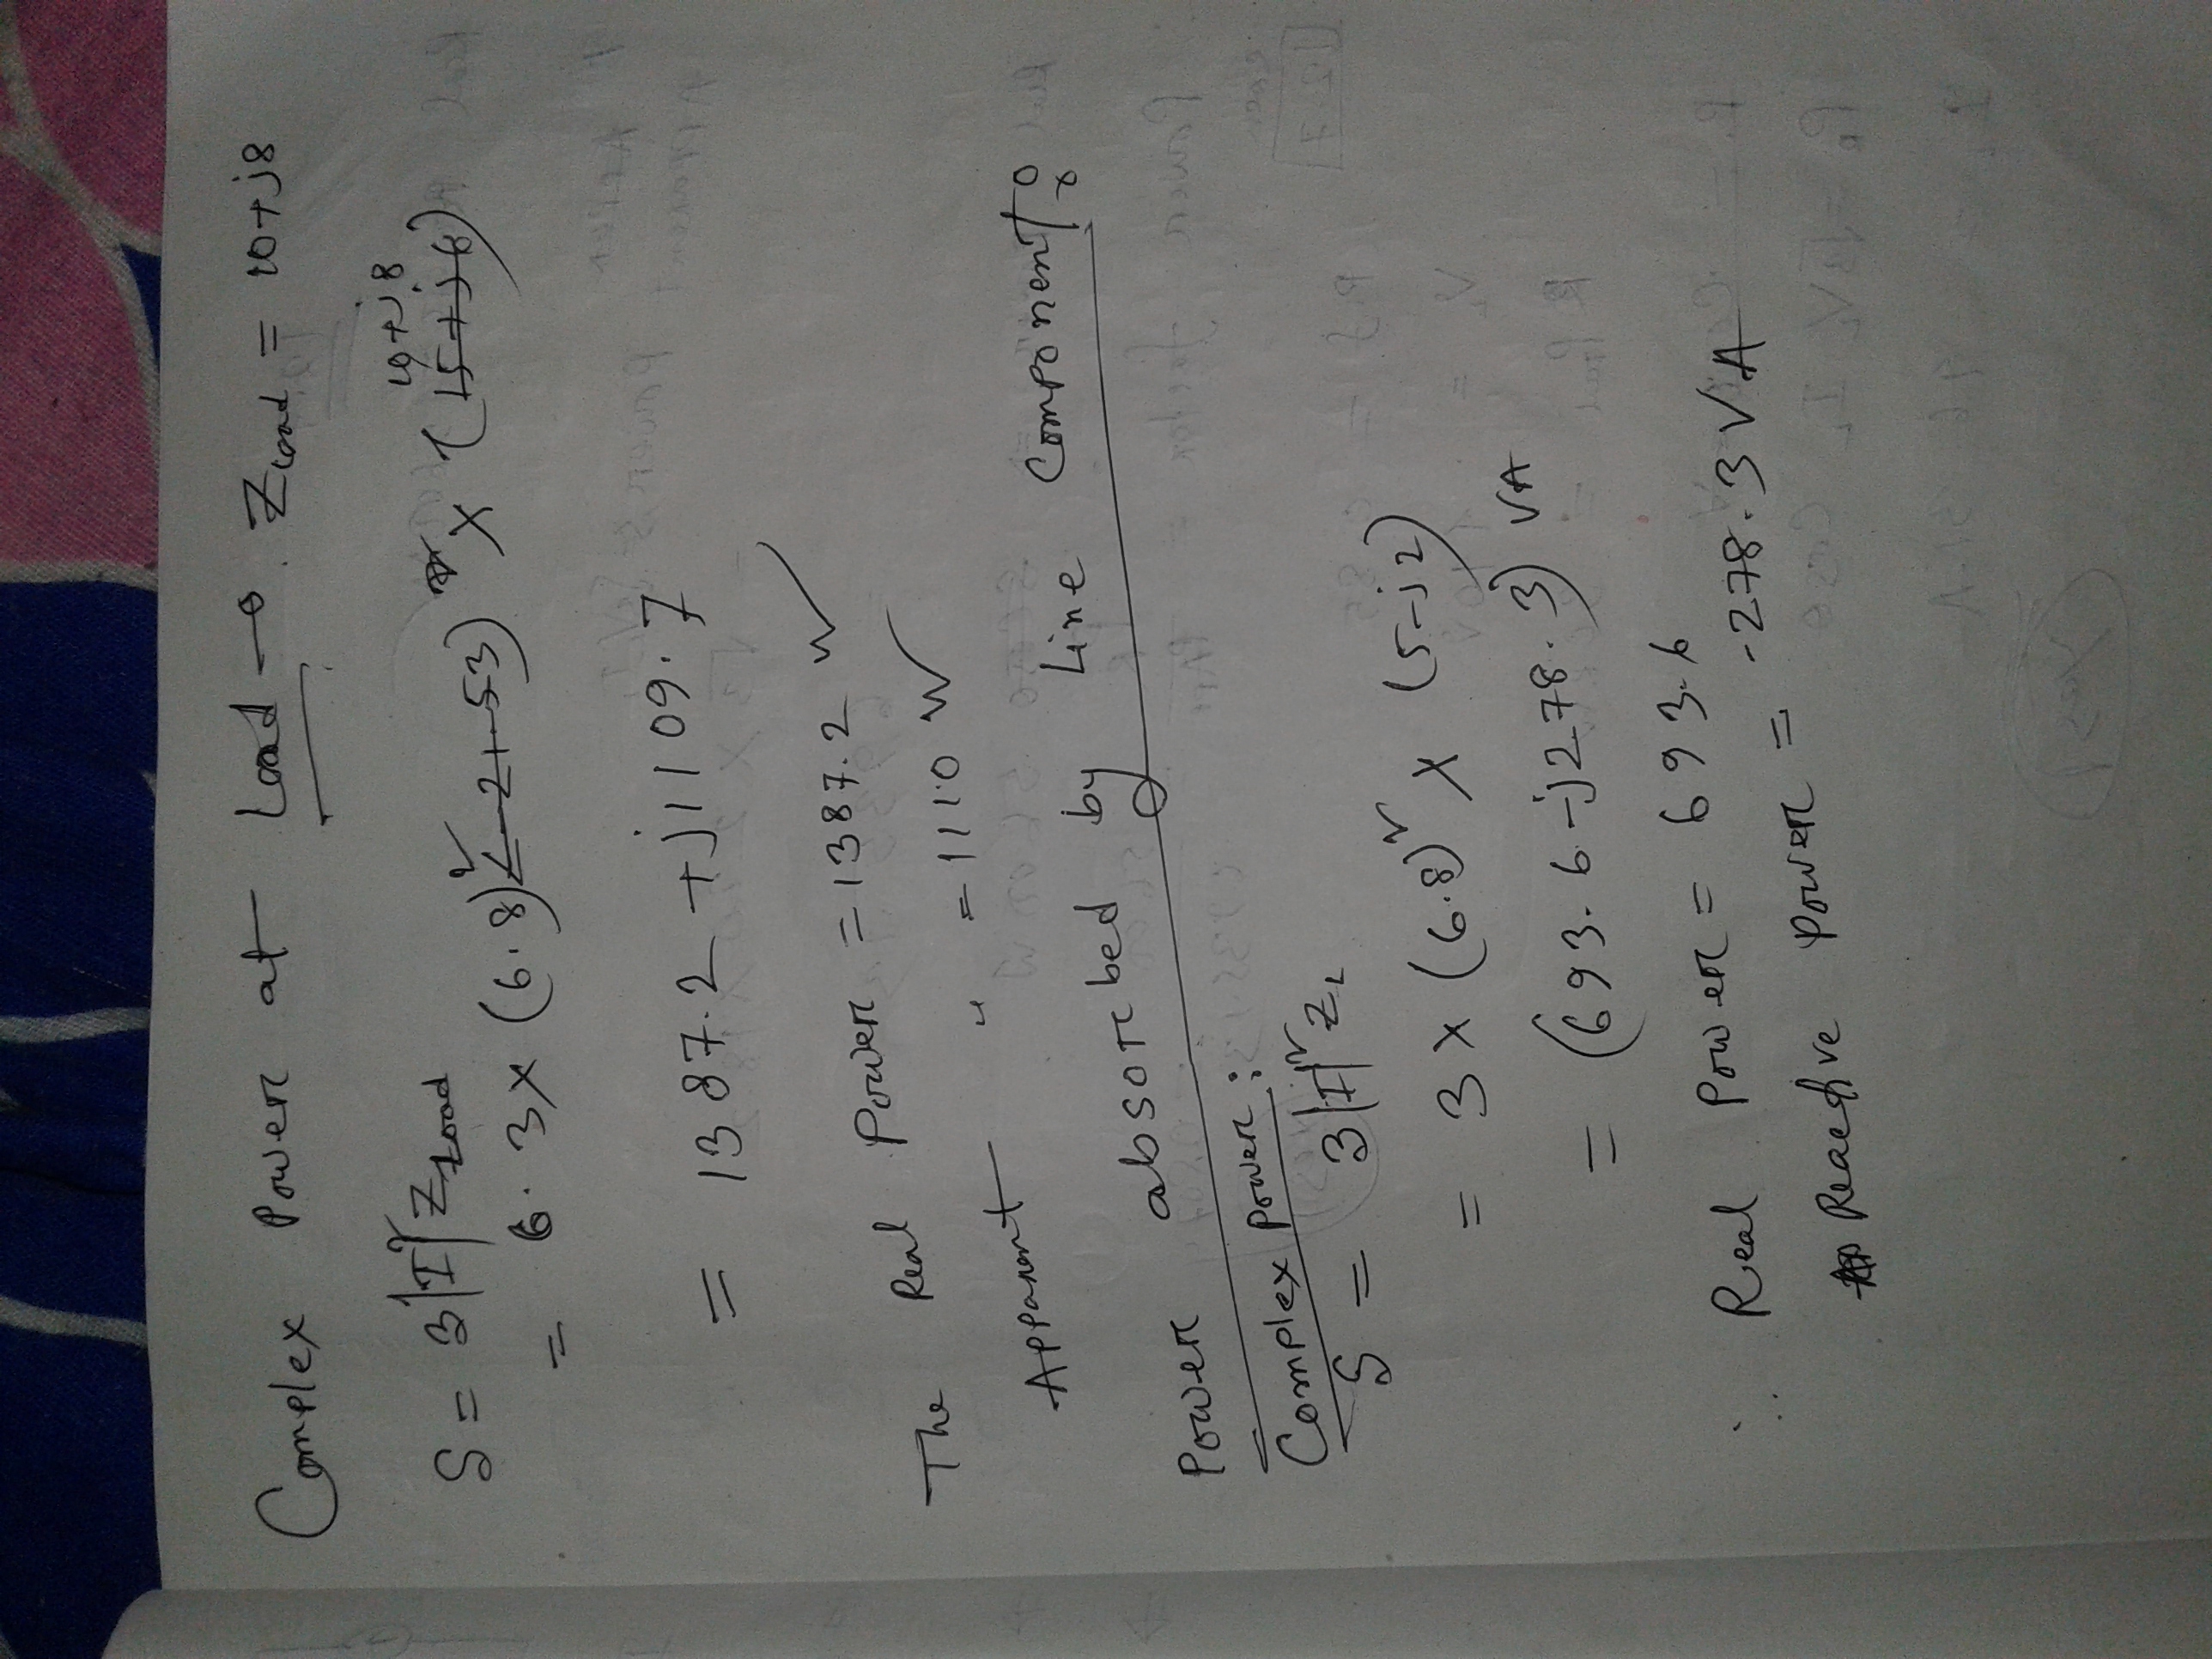 Complex Power at Load → Z_Load = 10+j8
S = 3|I|² Z_Load
10+j8
= 6. 3 × (6.8)² ∠-21.53) × (15+j6)
= 1387.2 + j1109.7
The Real Power = 1387.2 W
Apparent " = 1110 W
Power absorbed by Line Component:
Complex power:
S = 3|I|² Z_L
= 3 × (6.8)² × (5-j2)
= (693.6 - j278.3) VA
∴ Real Power = 693.6
Reactive Power = -278.3 VA